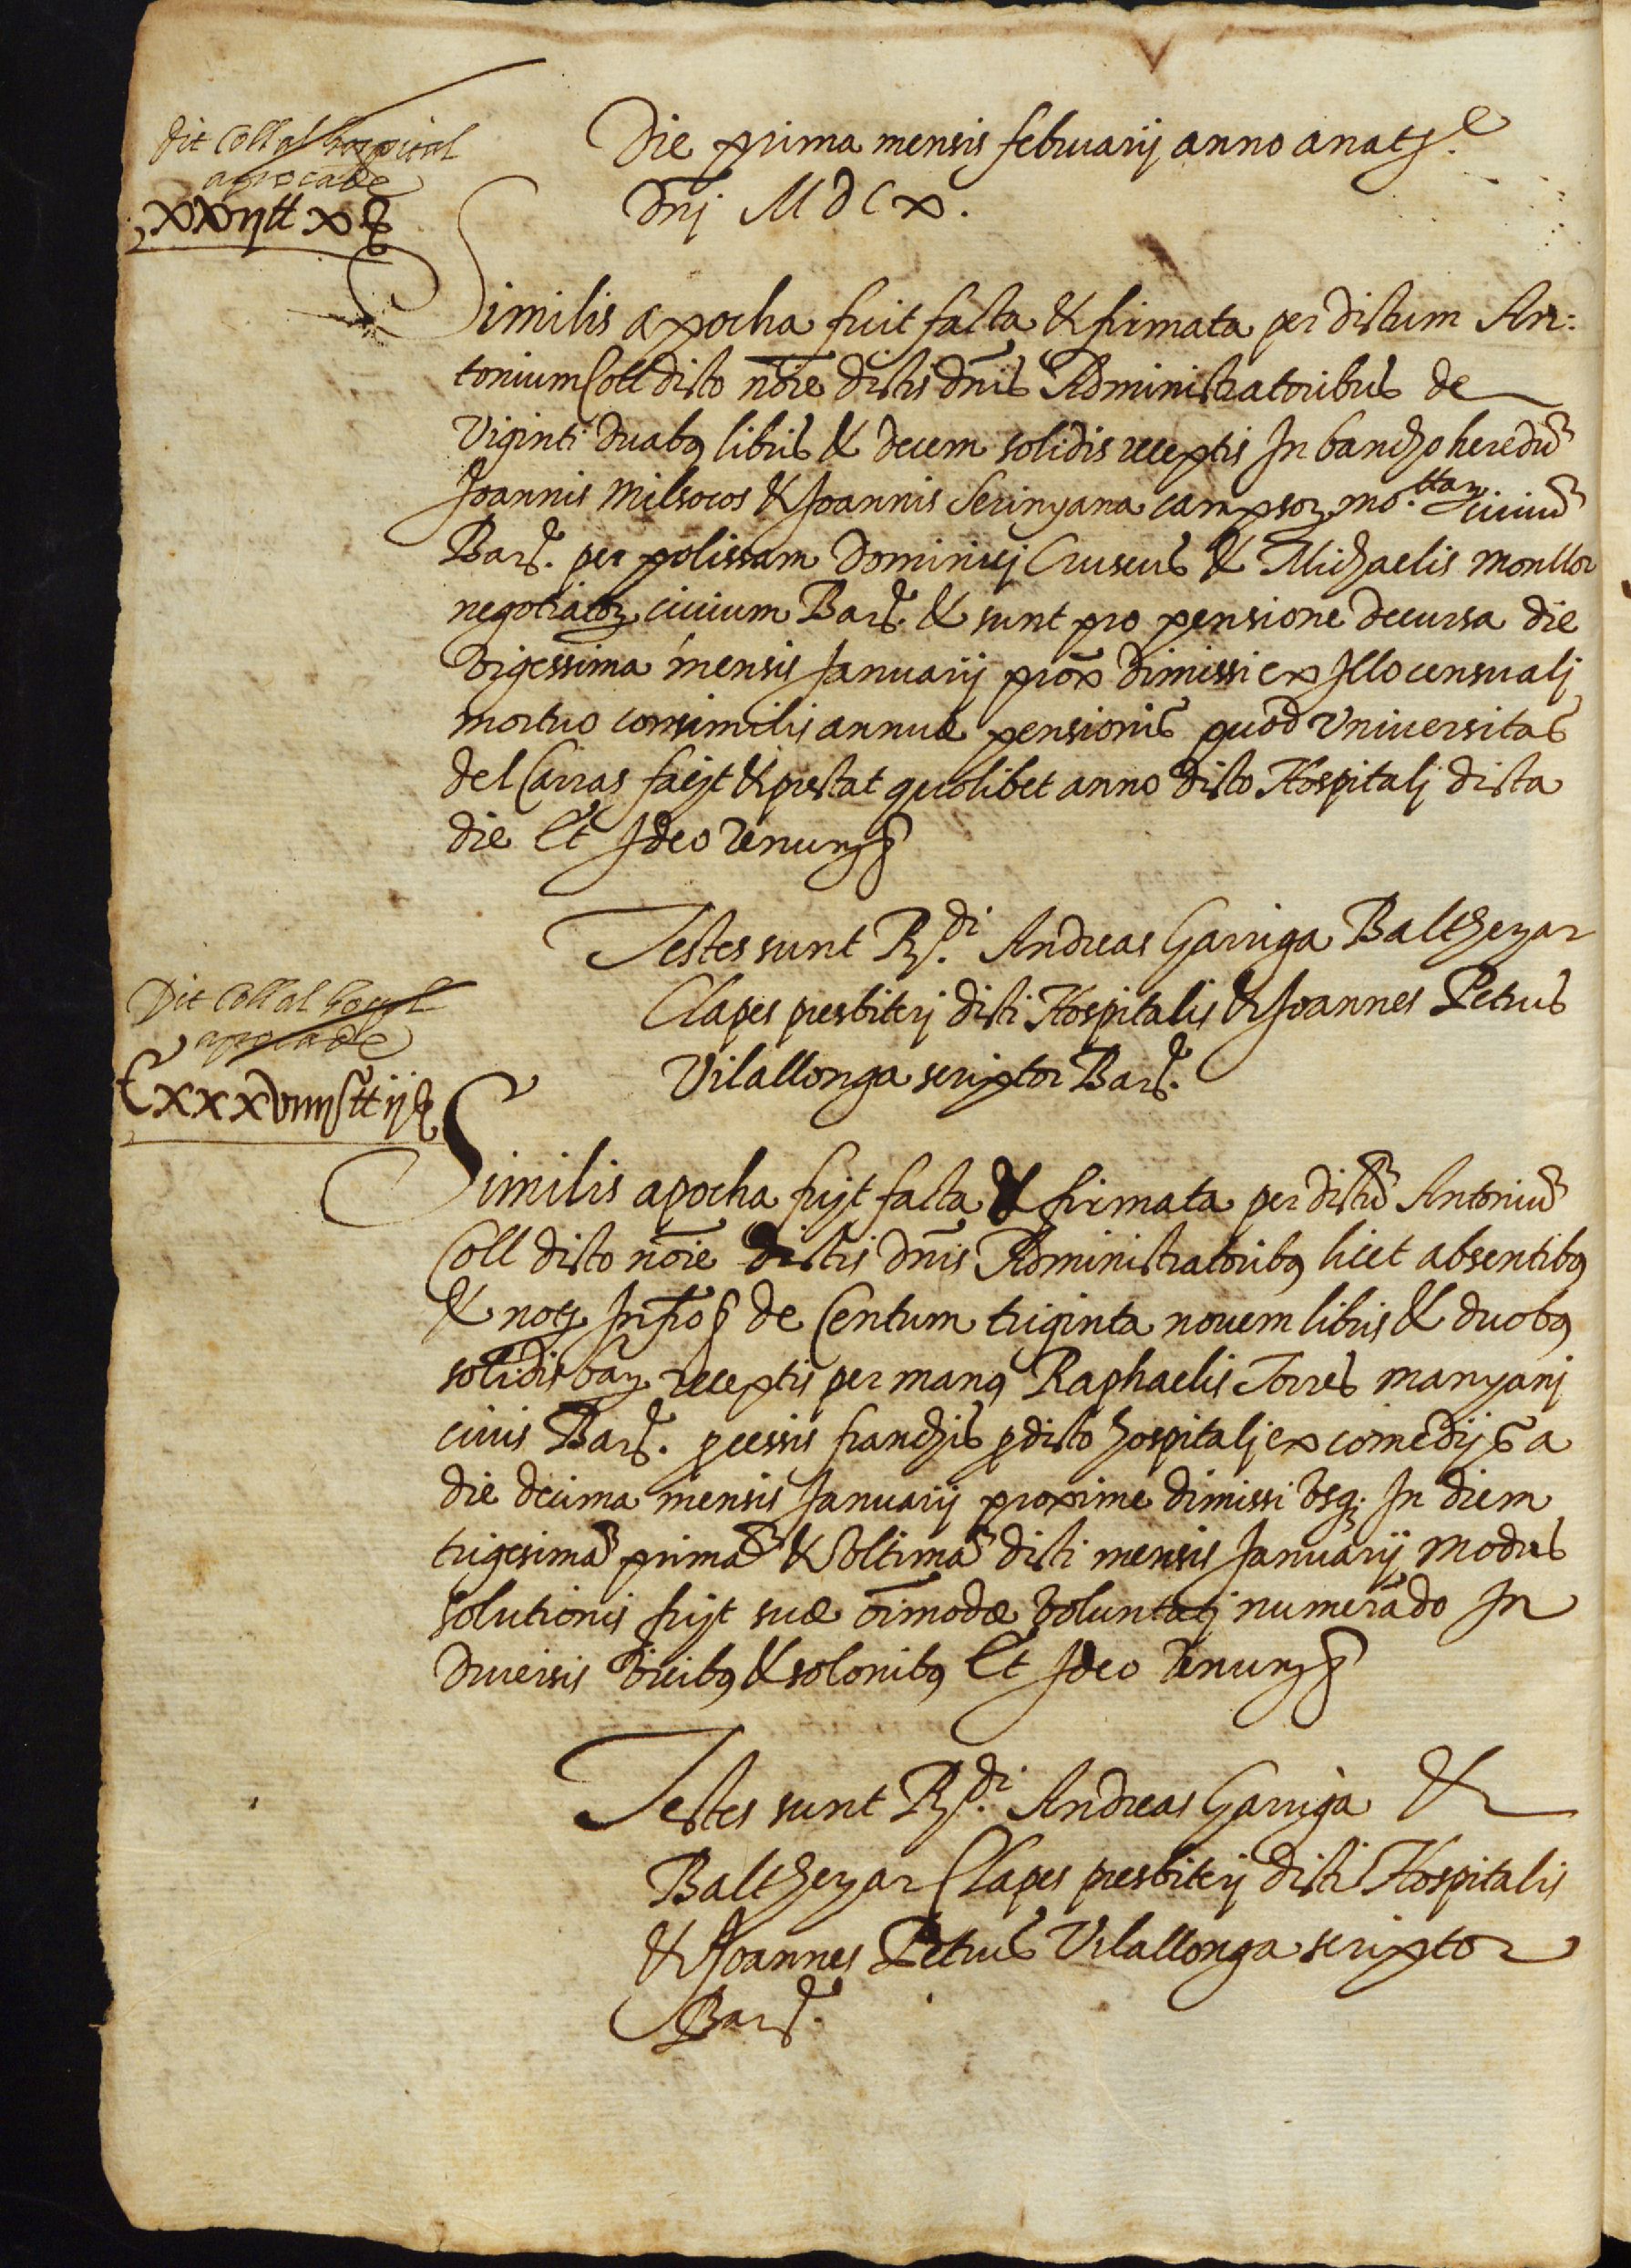 Dit Coll al hospital
apoca de
xxij ₶ x ß
Die prima mensis februarij anno a nat.e
Dnj MDCx.
Similis apocha fuit facta & firmata per dictum An:
tonium Coll dicto nõie dictis dnis Administratoribus de
Viginti duabꝰ libris & decem solidis receptis In bancho heredũ
Joannis Milsocos & Joannis Serinyana campsoꝝ mo. ciuiũ
Barᶜ. per polissam Dominici Cruseus & Michaelis Monllor
negotiatoꝝ ciuium Barᶜ. & sunt pro pensione decursa die
vigessima mensis Januarij prõx dimissi ex Illo censualj
mortuo consimilis annuæ pensionis quod Vniuersitas
del Carras facit & prestat quolibet anno dicto Hospitalj dicta
die Et Ideo renunᵍ
Testes sunt Rᵈⁱ. Andreas Garriga Balthezar
Clapes presbiterj dicti Hospitalis & Joannes Petrus
Vilallonga scriptor Barᶜ.
Dit Coll al hospl
apoca de
Cxxxviiij ₶ ij ß
Similis apocha fuyt facta & firmata per dictũ Antoniũ
Coll dicto nõie dictis dnis Administratoribꝰ licet absentibꝰ
& notᵒ Infrõ de Centum triginta nouem libris & duobꝰ
solidis barᶜ receptis per manꝰ Raphaelis Torres manyanj
ciuis Barᶜ. ꝓcessis franchis ꝓ dicto hospitalj ex comedijs a
die decima mensis Januarij proxime dimissi vsqꝫ In diem
trigesimã primã & vltimã dicti mensis Januarij Modus
solutionis fuyt suæ oĩmodæ voluntatj numerãdo In
diuersis vicibꝰ & solonibꝰ Et Ideo renunᵍ
Testes sunt Rᵈⁱ. Andreas Garriga &
Balthezar Clapes presbiterj dicti Hospitalis
& Joannes Petrus Vilallonga scriptor
Barᶜ.